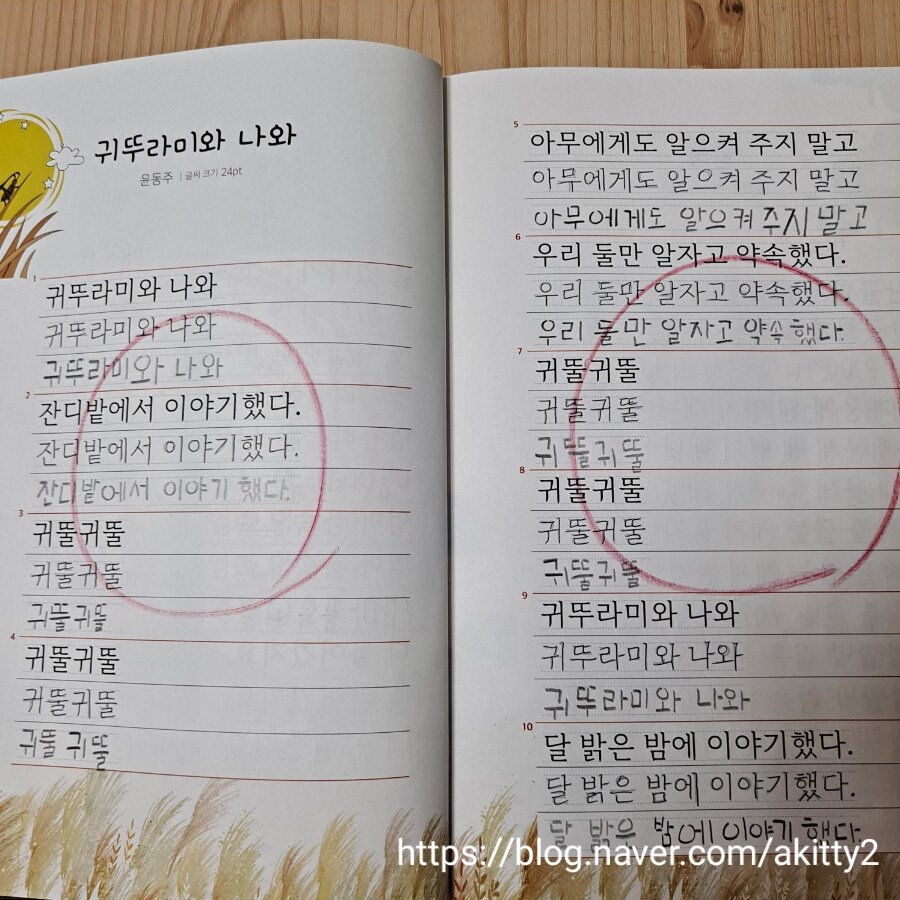 귀뚜라미와 나와
윤동주 | 글씨 크기 24pt
1
귀뚜라미와 나와
귀뚜라미와 나와
귀뚜라미와 나와
2
잔디밭에서 이야기했다.
잔디밭에서 이야기했다.
잔디밭에서 이야기 했다.
3
귀뚤귀뚤
귀뚤귀뚤
귀뚤귀뚤
4
귀뚤귀뚤
귀뚤귀뚤
귀뚤 귀뚤
5
아무에게도 알으켜 주지 말고
아무에게도 알으켜 주지 말고
아무에게도 알으켜 주지 말고
6
우리 둘만 알자고 약속했다.
우리 둘만 알자고 약속했다.
우리 둘만 알자고 약속했다.
7
귀뚤귀뚤
귀뚤귀뚤
귀뚤귀뚤
8
귀뚤귀뚤
귀뚤귀뚤
귀뚤귀뚤
9
귀뚜라미와 나와
귀뚜라미와 나와
귀뚜라미와 나와
10
달 밝은 밤에 이야기했다.
달 밝은 밤에 이야기했다.
달 밝은 밤에 이야기했다.
https://blog.naver.com/akitty2